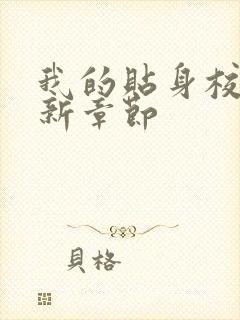 我的貼身校
新章節
貝格